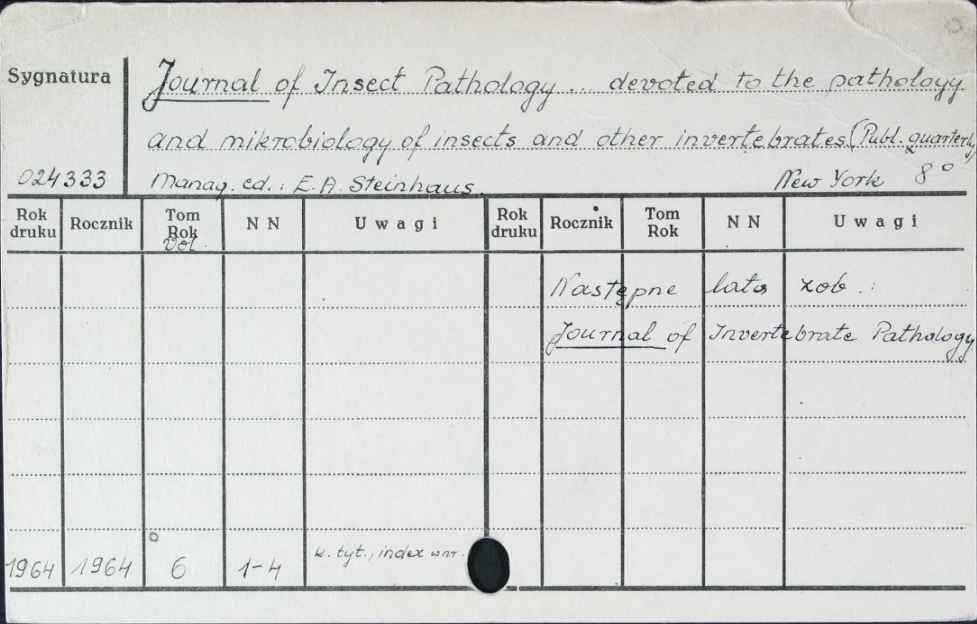 Sygnatura
Journal of Insect Pathology... devoted to the pathology
and mikrobiology of insects and other invertebrates (Publ. quarterly)
024333 Manag. ed.: E.A. Steinhaus. New York 8°
Rok druku Rocznik Tom Rok Vol. N N Uwagi Rok druku Rocznik Tom Rok N N Uwagi
Następne lata zob.:
Journal of Invertebrate Pathology
1964 1964 6 1-4 k. tyt., index